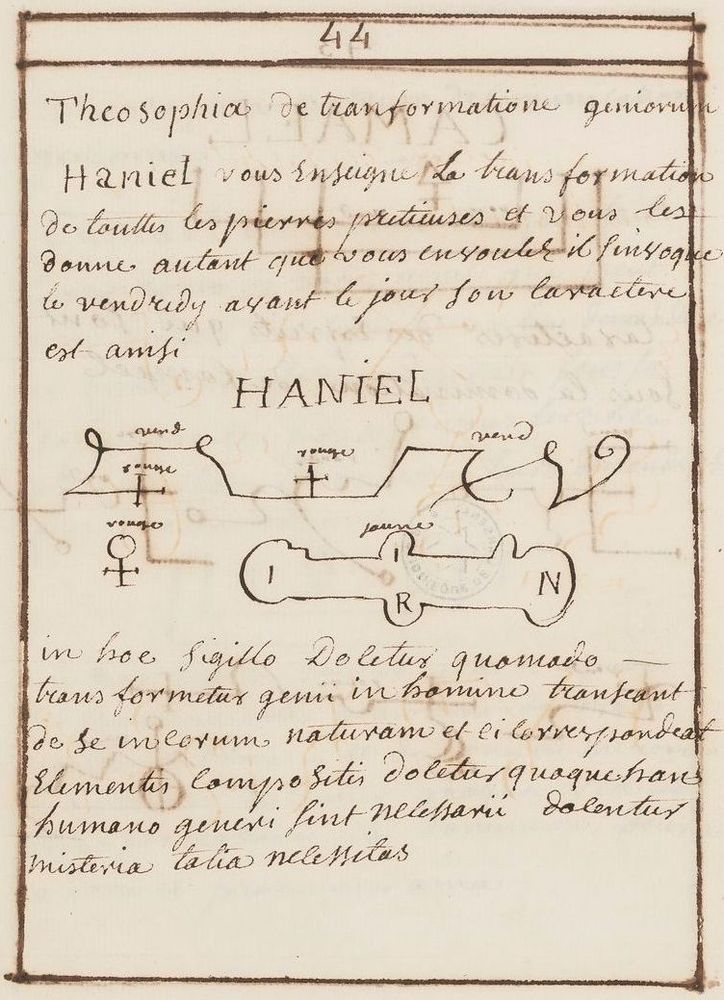 44
Theosophia de tranformatione geniorum
Haniel vous Enseigne La transformation
de touttes les pierres pretieuses et vous les
donne autant que vous en voulez il S'invoque
le vendredy avant le jour Son Caractere
est ainsi
HANIEL
verd
verd
rouge
rouge
rouge
jaune
I I N
R
in hoc Sigillo Doletur quomodo
transformetur genii in homine transeant
de Se in eorum naturam et ei Correspondeat
Elementis Compositis doletur quoque han
humano generi Sint necessarii dolentur
misteria talia necessitas